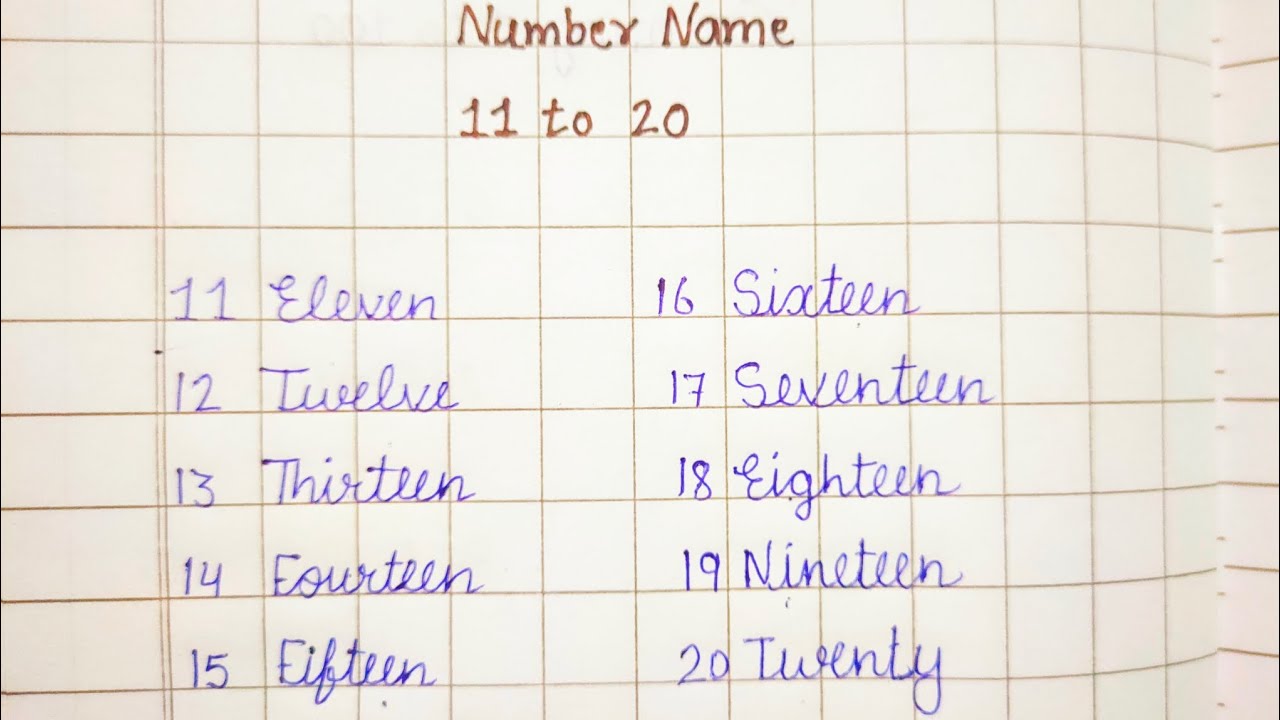 Number Name
11 to 20
11 Eleven
12 Twelve
13 Thirteen
14 Fourteen
15 Fifteen
16 Sixteen
17 Seventeen
18 Eighteen
19 Nineteen
20 Twenty